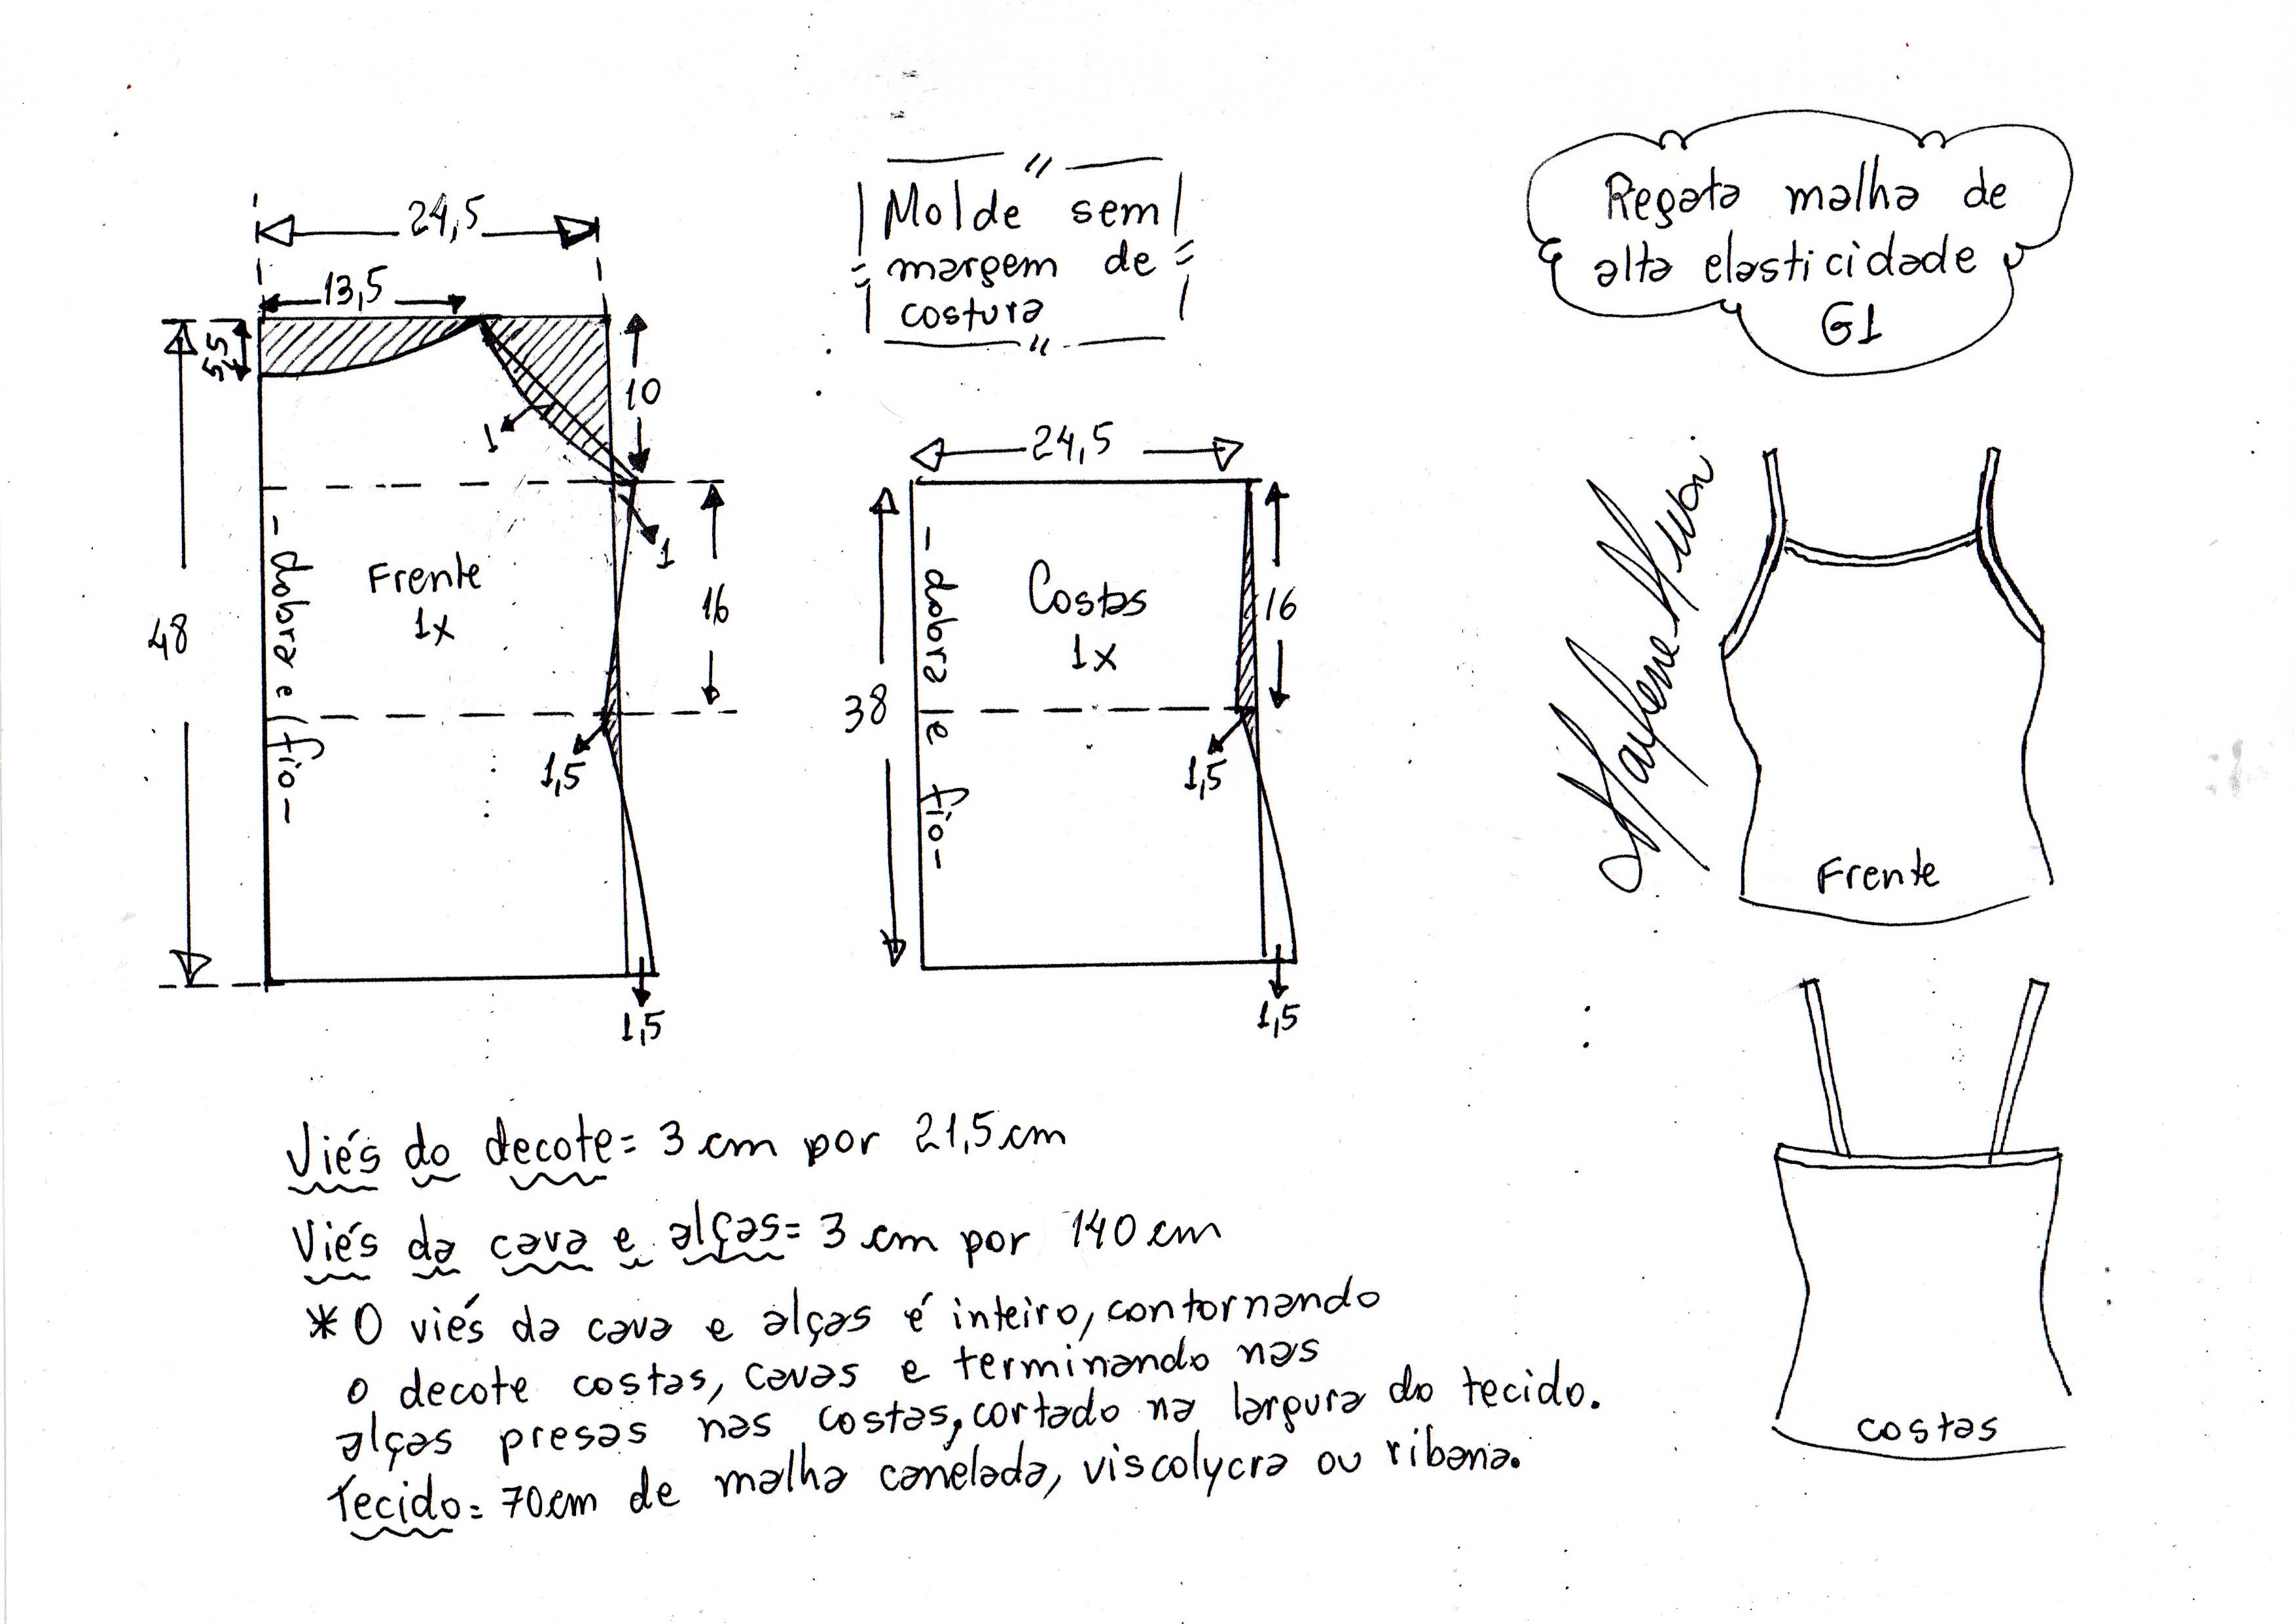 24,5
13,5
5,5
10
1
1
48
16
- dobra e fio -
Frente
1x
1,5
1,5
" Molde sem
= margem de =
costura "
24,5
38
16
- dobra e fio -
Costas
1x
1,5
1,5
Regata malha de
alta elasticidade
G1
Frente
costas
Viés do decote = 3 cm por 21,5 cm
Viés da cava e alças = 3 cm por 140 cm
* O viés da cava e alças é inteiro, contornando
o decote costas, cavas e terminando nas
alças presas nas costas, cortado na largura do tecido.
Tecido = 70cm de malha canelada, viscolycra ou ribana.